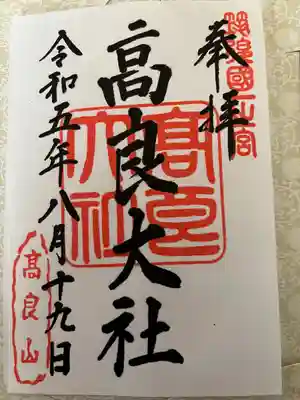 奉拝
筑後國一之宮
高良大社
髙良大社
令和五年八月十九日
高良山